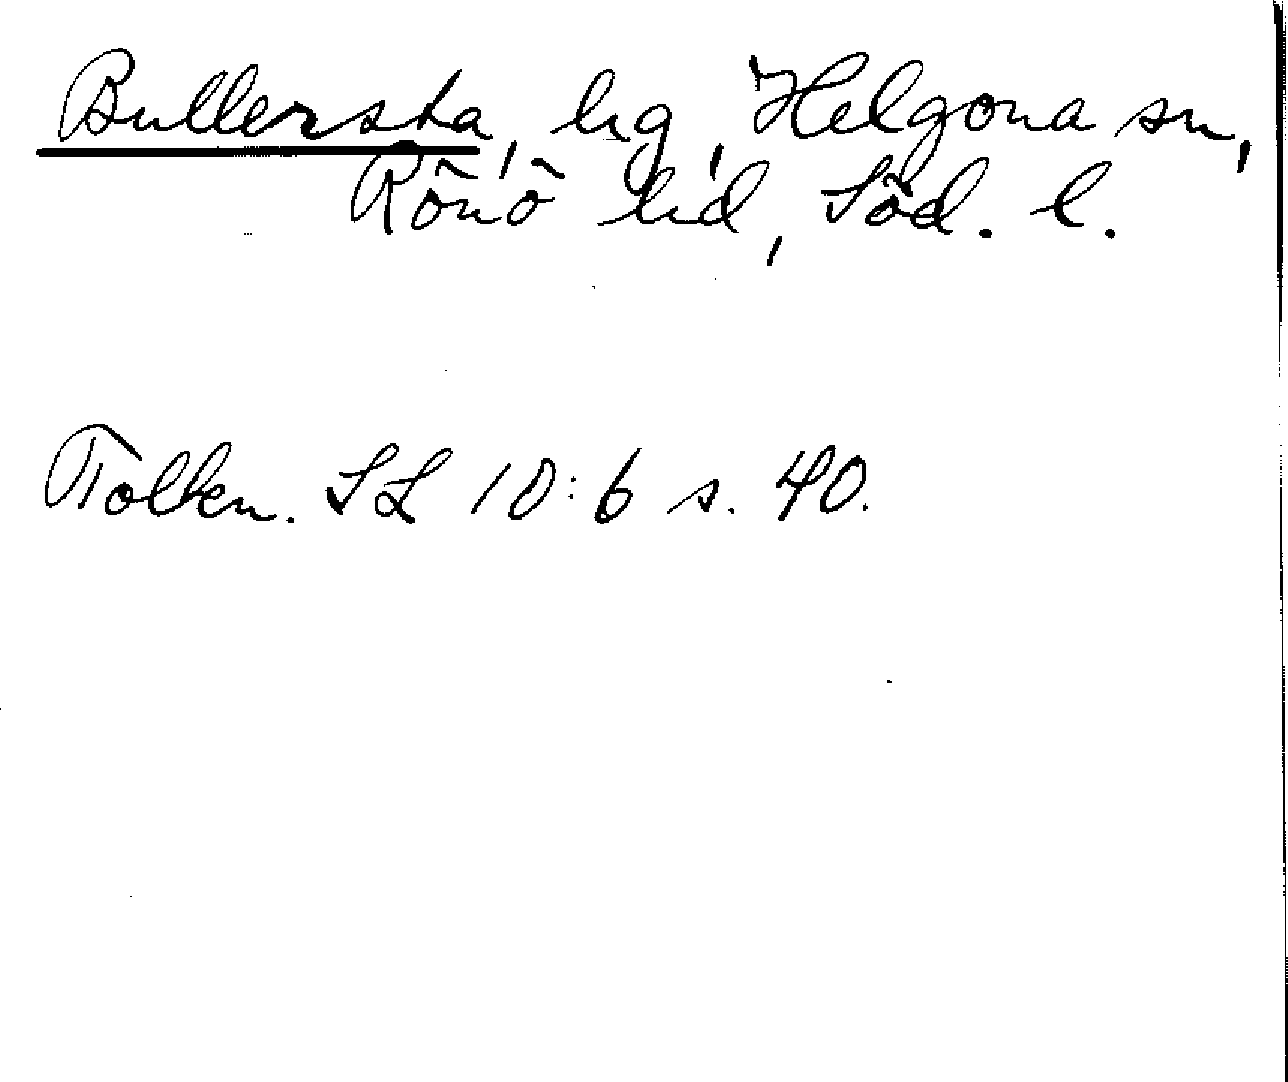 Bullersta, hg, Helgona sn,
Rönö hd, Söd. l.
Tolkn. SL 10:6 s. 40.